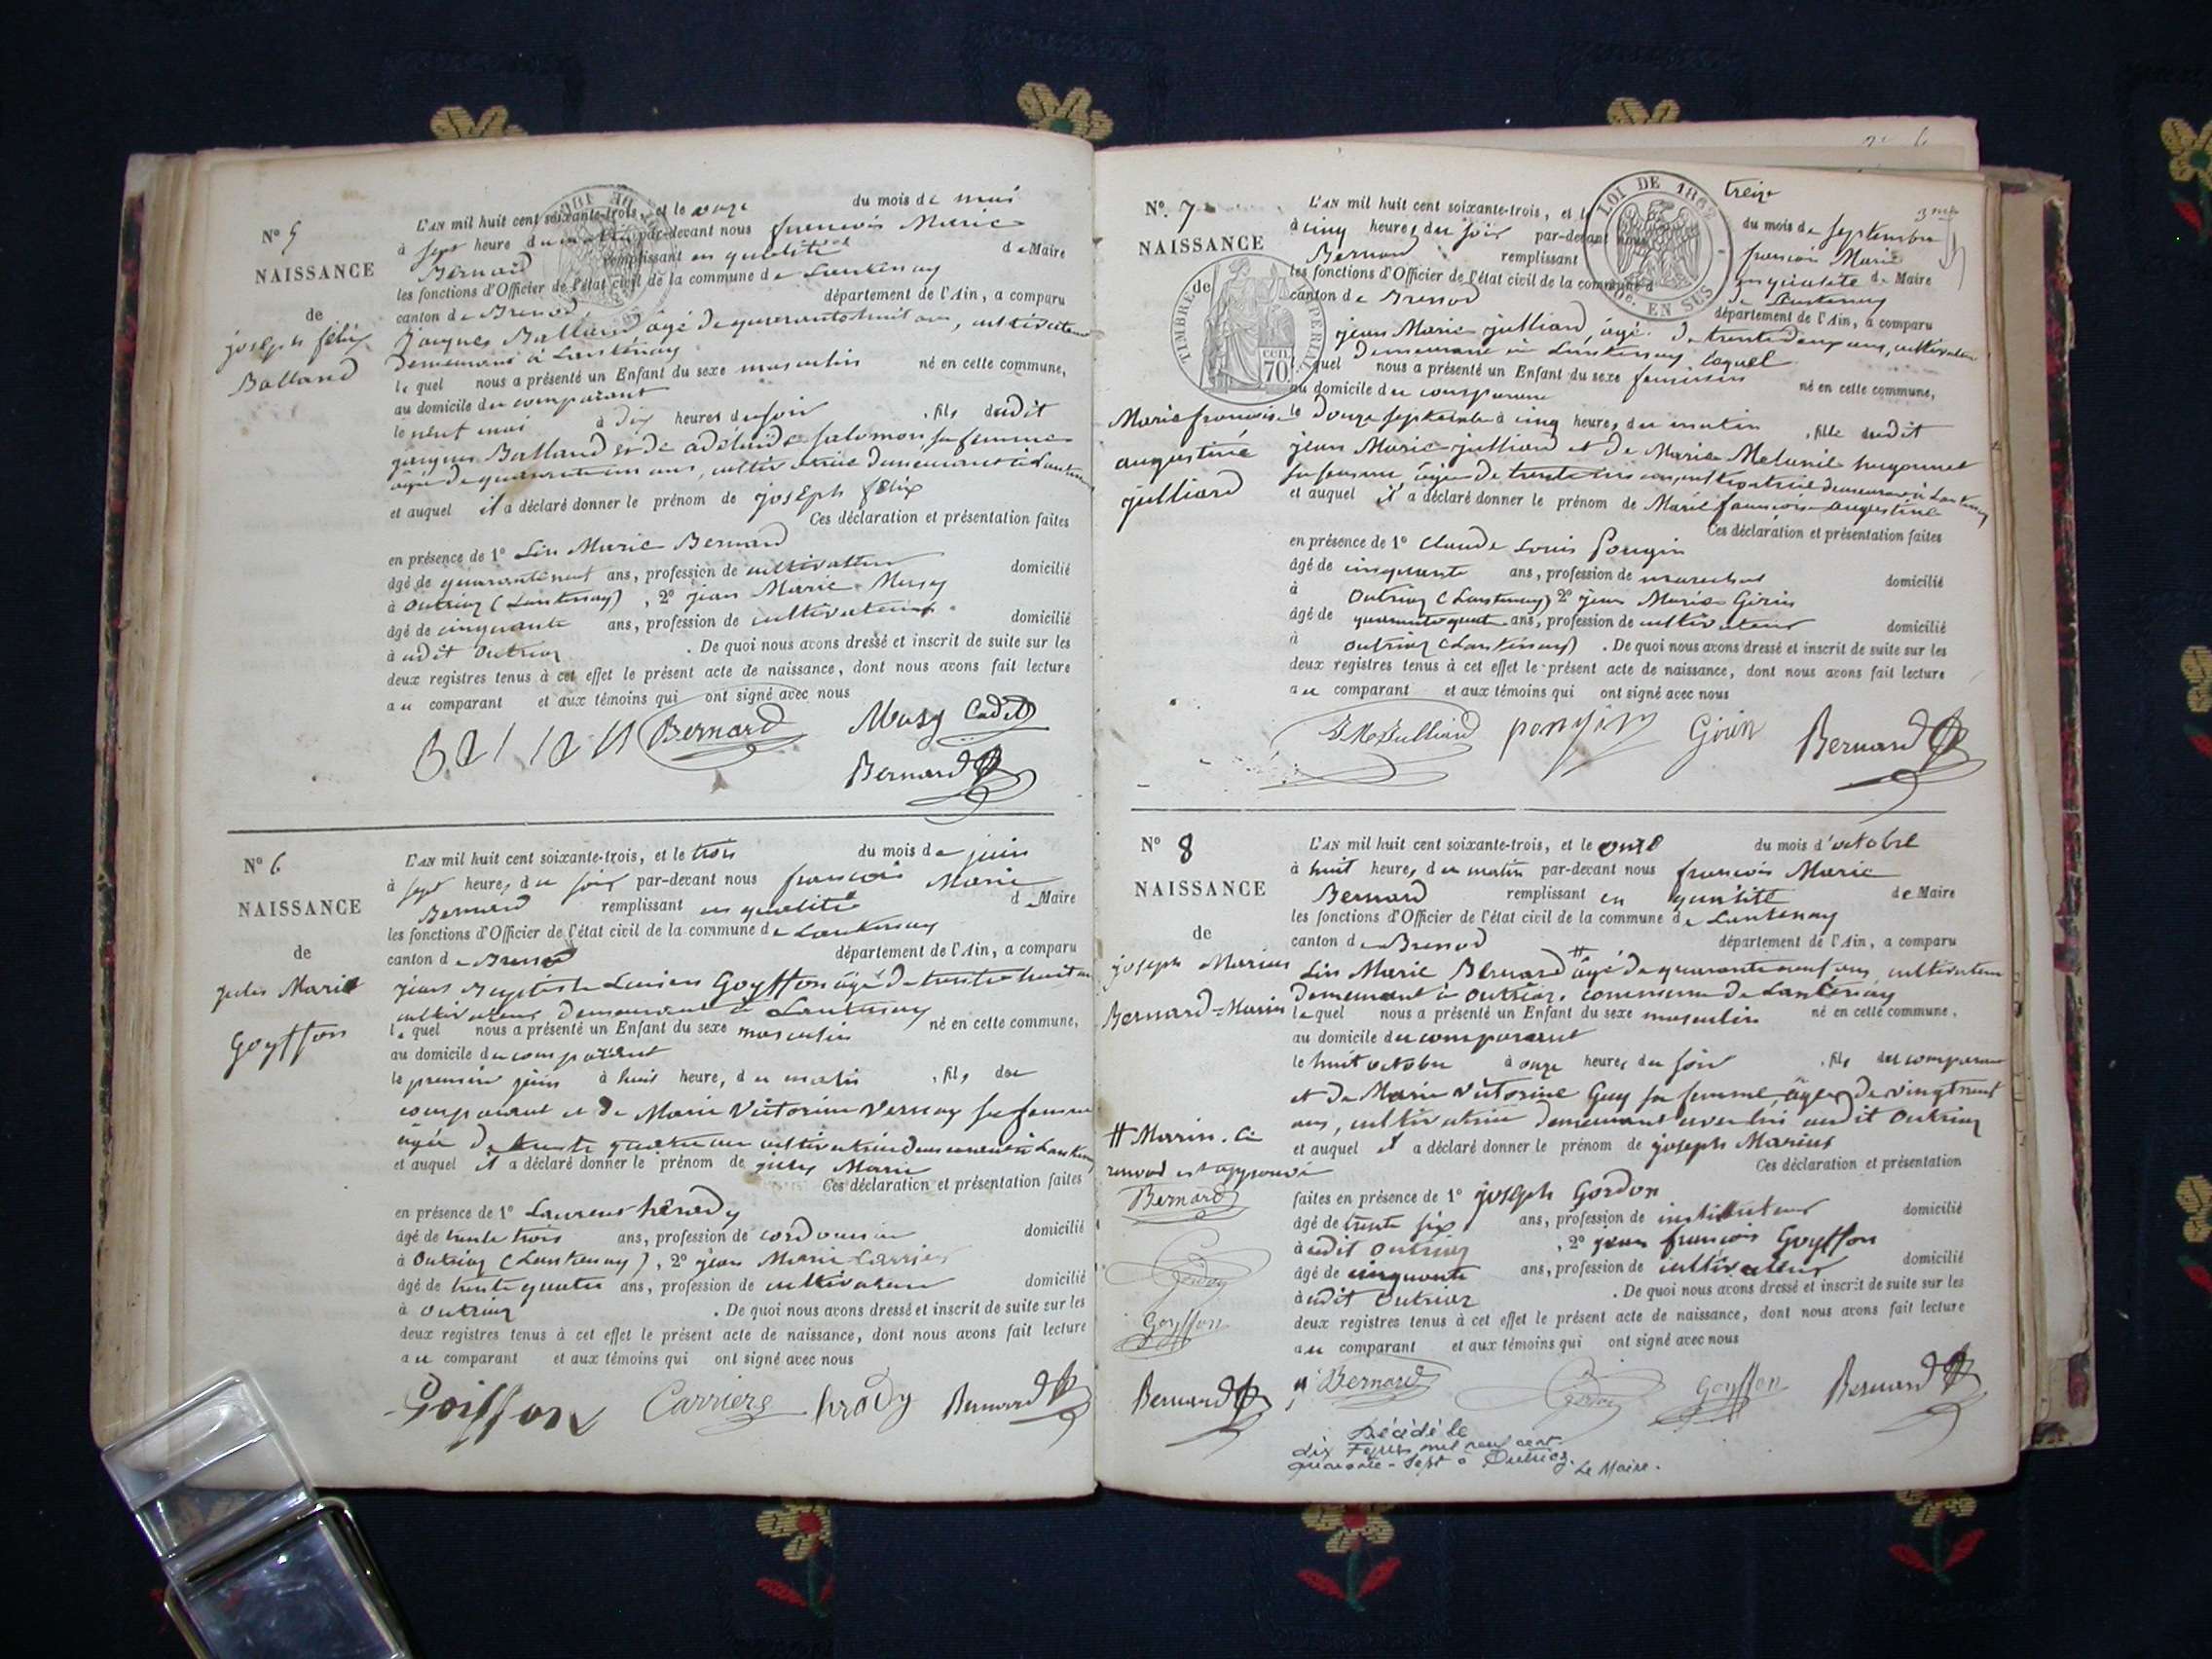 N° 5
NAISSANCE
de
joseph félix
Balland
L'AN mil huit cent soixante-trois, et le onze du mois de mai
à sept heure du matin par-devant nous françois Marie
Bernard remplissant en qualité de Maire
les fonctions d'Officier de l'état civil de la commune de Lantenay
canton de Brenod département de l'Ain, a comparu
jacques Balland âgé de quarante huit ans, cultivateur
demeurant à Lantenay
lequel nous a présenté un Enfant du sexe masculin né en cette commune,
au domicile du comparant
le neuf mai à dix heures du soir, fils dudit
jacques Balland et de adélaïde salomon sa femme
âgée de quarante un ans, cultivatrice demeurant à Lantenay
et auquel il a déclaré donner le prénom de joseph félix
Ces déclaration et présentation faites
en présence de 1° Lin Marie Bernard
âgé de quarante neuf ans, profession de cultivateur domicilié
à Outriaz (Lantenay), 2° jean Marie Musy
âgé de cinquante ans, profession de cultivateur domicilié
à udit Outriaz. De quoi nous avons dressé et inscrit de suite sur les
deux registres tenus à cet effet le présent acte de naissance, dont nous avons fait lecture
au comparant et aux témoins qui ont signé avec nous
Bernard Musy Cadet
Bernard
N° 6
NAISSANCE
de
jules Marie
Goyffon
L'AN mil huit cent soixante-trois, et le trois du mois de juin
à sept heures du soir par-devant nous françois Marie
Bernard remplissant en qualité de Maire
les fonctions d'Officier de l'état civil de la commune de Lantenay
canton de Brenod département de l'Ain, a comparu
jean Baptiste Lucien Goyffon âgé de trente huit ans
cultivateur demeurant à Lantenay
lequel nous a présenté un Enfant du sexe masculin né en cette commune,
au domicile du comparant
le premier juin à huit heures du matin, fils du
comparant et de Marie Victorine Vernay sa femme
âgée de trente quatre ans cultivatrice demeurant à Lantenay
et auquel il a déclaré donner le prénom de jules Marie
Ces déclaration et présentation faites
en présence de 1° Laurent
âgé de trente trois ans, profession de cordonnier domicilié
à Outriaz (Lantenay), 2° jean Marie Carrier
âgé de trente quatre ans, profession de cultivateur domicilié
à Outriaz. De quoi nous avons dressé et inscrit de suite sur les
deux registres tenus à cet effet le présent acte de naissance, dont nous avons fait lecture
au comparant et aux témoins qui ont signé avec nous
Goiffon Carrier Bernard
N° 7
NAISSANCE
de
Marie françoise
augustine
julliard
TIMBRE IMPERIAL
70
LOI DE 1862
EN SUS
L'AN mil huit cent soixante-trois, et le treize du mois de septembre
à cinq heures du soir par-devant nous françois Marie
Bernard remplissant en qualité de Maire
les fonctions d'Officier de l'état civil de la commune de Lantenay
canton de Brenod département de l'Ain, a comparu
jean Marie julliard, âgé de trente deux ans, cultivateur
demeurant à Lantenay laquel
quel nous a présenté un Enfant du sexe féminin né en cette commune,
au domicile du comparant
le douze septembre à cinq heures du matin, fille dudit
jean Marie julliard et de Marie Melanie hugonnet
sa femme, âgée de trente ans, cultivatrice demeurant à Lantenay
et auquel il a déclaré donner le prénom de Marie françoise augustine
Ces déclaration et présentation faites
en présence de 1° Claude Louis Pongin
âgé de cinquante ans, profession de marechal domicilié
à Outriaz (Lantenay) 2° jean Marie Girin
âgé de quarante quatre ans, profession de cultivateur domicilié
à Outriaz (Lantenay). De quoi nous avons dressé et inscrit de suite sur les
deux registres tenus à cet effet le présent acte de naissance, dont nous avons fait lecture
au comparant et aux témoins qui ont signé avec nous
J M Julliard pongin Girin Bernard
N° 8
NAISSANCE
de
joseph Marius
Bernard=Marin
L'AN mil huit cent soixante-trois, et le onze du mois d'octobre
à huit heures du matin par-devant nous françois Marie
Bernard remplissant en qualité de Maire
les fonctions d'Officier de l'état civil de la commune de Lantenay
canton de Brenod département de l'Ain, a comparu
Lin Marie Bernard # âgé de quarante neuf ans, cultivateur
demeurant à Outriaz, commune de Lantenay
lequel nous a présenté un Enfant du sexe masculin né en cette commune,
au domicile du comparant
le huit octobre à onze heures du soir, fils du comparant
et de Marie Victorine Guy sa femme, âgée de vingt neuf
ans, cultivatrice demeurant avec lui audit Outriaz
et auquel il a déclaré donner le prénom de joseph Marius
Ces déclaration et présentation
faites en présence de 1° joseph Gordon
âgé de trente six ans, profession de instituteur domicilié
à udit Outriaz, 2° jean françois Goyffon
âgé de cinquante ans, profession de cultivateur domicilié
à udit Outriaz. De quoi nous avons dressé et inscrit de suite sur les
deux registres tenus à cet effet le présent acte de naissance, dont nous avons fait lecture
au comparant et aux témoins qui ont signé avec nous
# Marin. Ce
renvoi est approuvé
Bernard
Gordon
Goyffon
Bernard
Bernard Gordon Goyffon Bernard
Décédé le
dix mil neuf cent
quarante-sept à Outriaz. Le Maire.